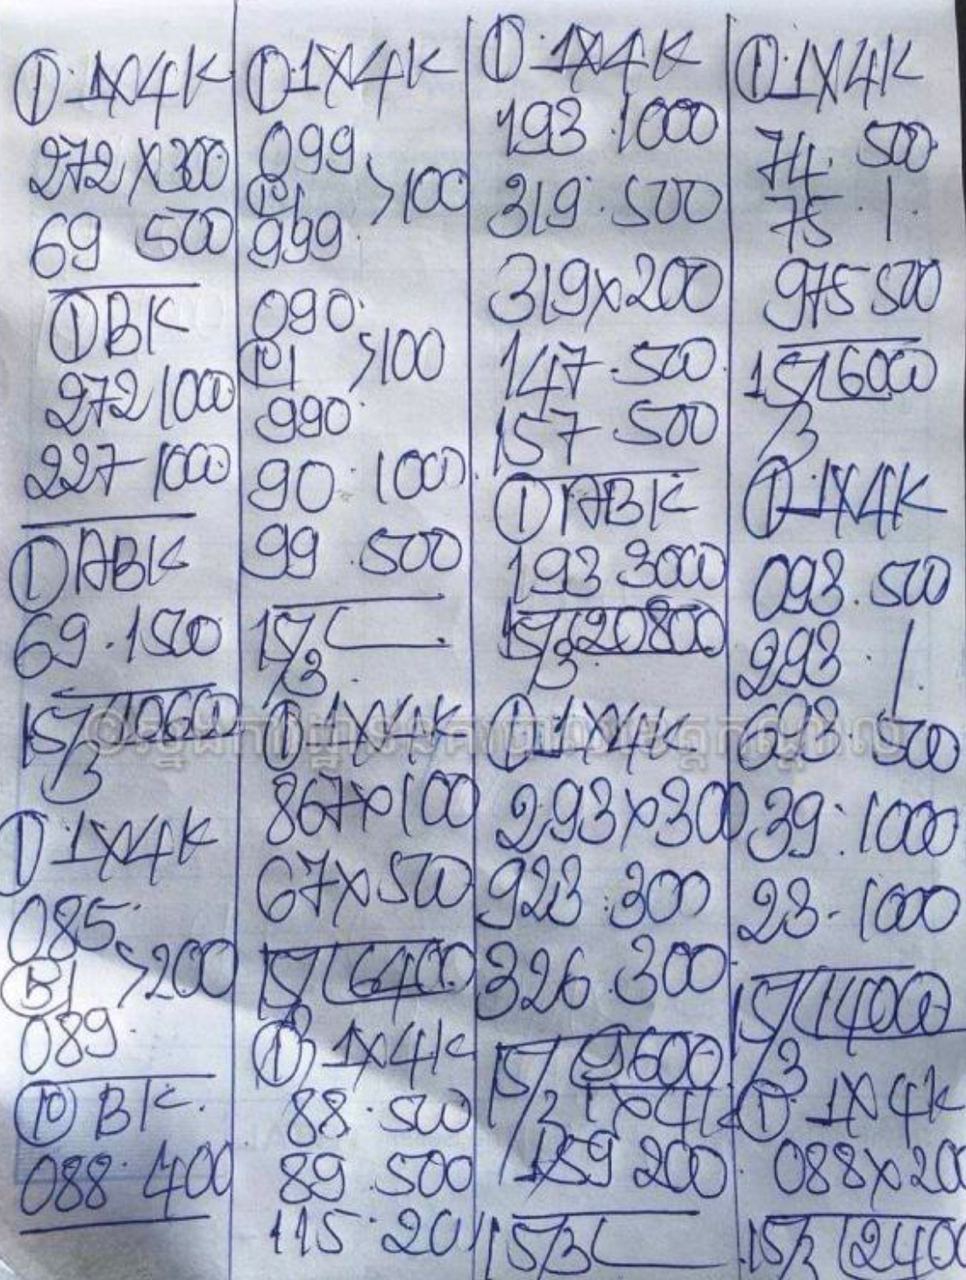 ① 1X4K
272 X 300
69 500
① BK
272 1000
227 1000
① ABK
69 . 1500
15/3
① 1X4K
085
>200
089
⑩ BK
088 400
① 1X4K
099
>100
999
090
>100
990
90 . 1000
99 . 500
15/3
① 1X4K
867 x 100
67 x 500
15/3 6400
① 1X4K
88 . 500
89 . 500
115 . 20
① 1X4K
193 . 1000
319 . 500
319 x 200
147 . 500
157 500
① ABK
193 3000
15/3 20800
① 1X4K
293 x 300
923 . 300
326 . 300
15/3 9600
1X4K
159 200
15/3
① 1X4K
74 . 500
75 . |
975 500
15/3 6000
① 1X4K
093 . 500
293 . |
693 . 500
39 . 1000
23 - 1000
15/3 14000
① 1X4K
088 x 200
15/3 2400